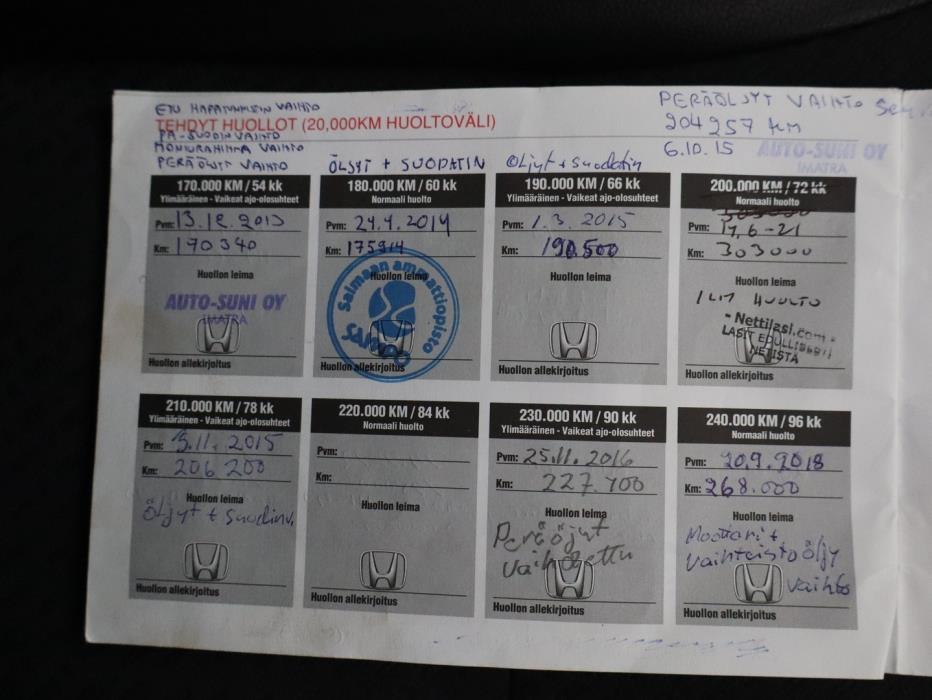 ETU HAPATUNNISTIN VAIHTO
TEHDYT HUOLLOT (20,000KM HUOLTOVÄLI)
PA-SUODIN VAIHTO
MONIURAHIHNA VAIHTO
PERÄÖLJYT VAIHTO
PERÄÖLJYT VAIHTO
204257 KM
6.10.15
AUTO-SUNI OY
IMATRA
170.000 KM / 54 kk
Ylimääräinen - Vaikeat ajo-olosuhteet
Pvm: 13.12.2013
Km: 170340
Huollon leima
AUTO-SUNI OY
IMATRA
Huollon allekirjoitus
ÖLJYT + SUODATIN
180.000 KM / 60 kk
Normaali huolto
Pvm: 24.4.2014
Km: 175914
Huollon leima
Saimaan ammattiopisto
SAMPO
Huollon allekirjoitus
Öljyt + Suodatin
190.000 KM / 66 kk
Ylimääräinen - Vaikeat ajo-olosuhteet
Pvm: 1.3.2015
Km: 190.500
Huollon leima
Huollon allekirjoitus
200.000 KM / 72 kk
Normaali huolto
Pvm: 17.6-21
Km: 303000
Huollon leima
HUOLTO
Nettilasi.com
LASIT EDULLISESTI
NETISTÄ
Huollon allekirjoitus
210.000 KM / 78 kk
Ylimääräinen - Vaikeat ajo-olosuhteet
Pvm: 3.11.2015
Km: 206 200
Huollon leima
Öljyt + Suodinv.
Huollon allekirjoitus
220.000 KM / 84 kk
Normaali huolto
Pvm:
Km:
Huollon leima
Huollon allekirjoitus
230.000 KM / 90 kk
Ylimääräinen - Vaikeat ajo-olosuhteet
Pvm: 25.11.2016
Km: 227.700
Huollon leima
Peräöjyt
vaihdettu
Huollon allekirjoitus
240.000 KM / 96 kk
Normaali huolto
Pvm: 20.9.2018
Km: 268.000
Huollon leima
Moottori +
vaihteistoöljy
vaihto
Huollon allekirjoitus